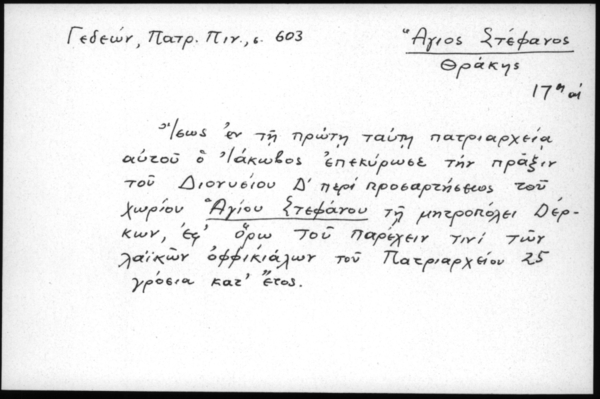 Γεδεών, Πατρ. Πιν., σ. 603
Ἅγιος Στέφανος
Θράκης
17η αἰ
Ἴσως ἐν τῇ πρώτῃ ταύτῃ πατριαρχείᾳ
αὐτοῦ ὁ Ἰάκωβος ἐπεκύρωσε τὴν πρᾶξιν
τοῦ Διονυσίου Δ' περί προσαρτήσεως τοῦ
χωρίου Ἁγίου Στεφάνου τῇ μητροπόλει Δέρ-
κων, ἐφ' ὅρῳ τοῦ παρέχειν τινί τῶν
λαϊκῶν ὀφφικιάλων τοῦ Πατριαρχείου 25
γρόσια κατ' ἔτος.